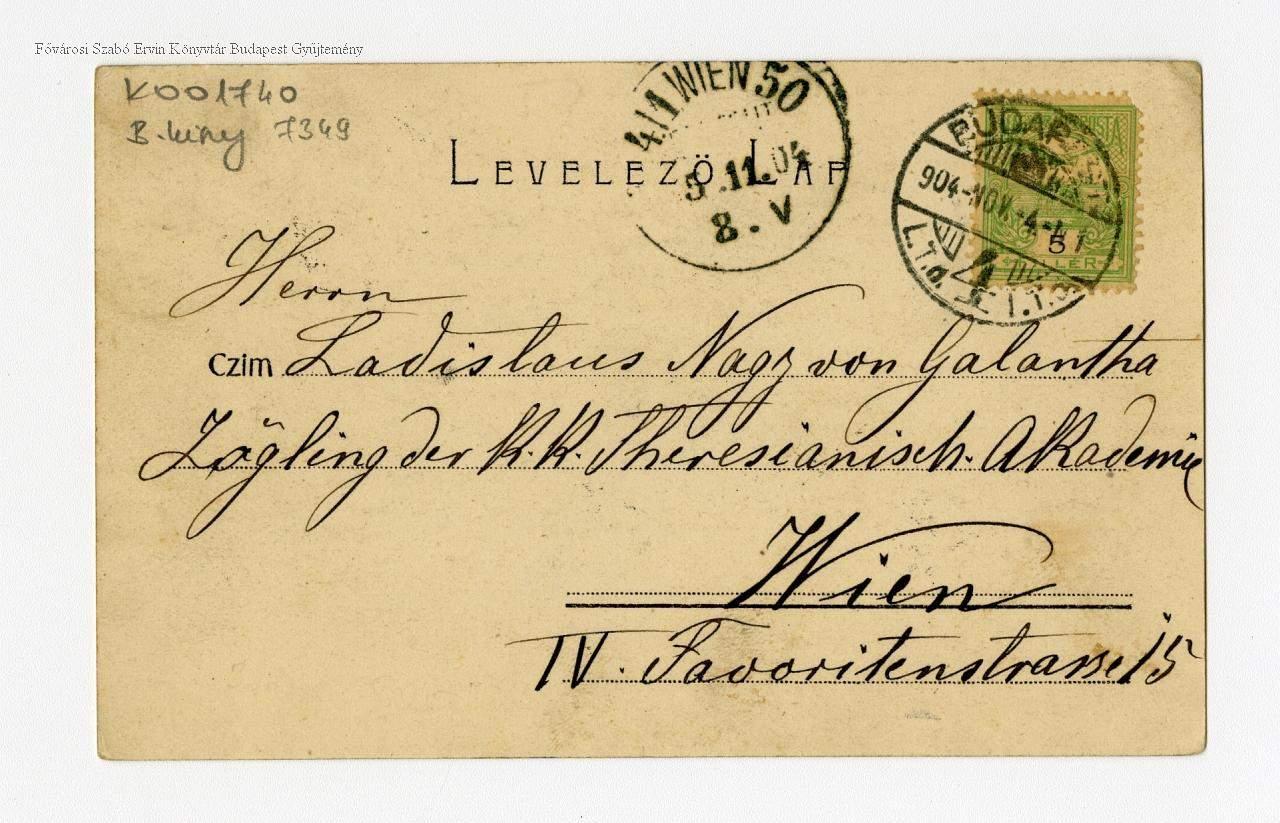 Fővárosi Szabó Ervin Könyvtár Budapest Gyűjtemény
K001740
B.
7349
4/1 WIEN 50
5.11.04
8. V
LEVELEZŐ LAP
BUDAPEST
904-NOV.-4
5
Herrn
Czim Ladislaus Nagy von Galantha
Zögling der k.k. Theresianisch. Akademie
Wien
IV. Favoritenstrasse 15